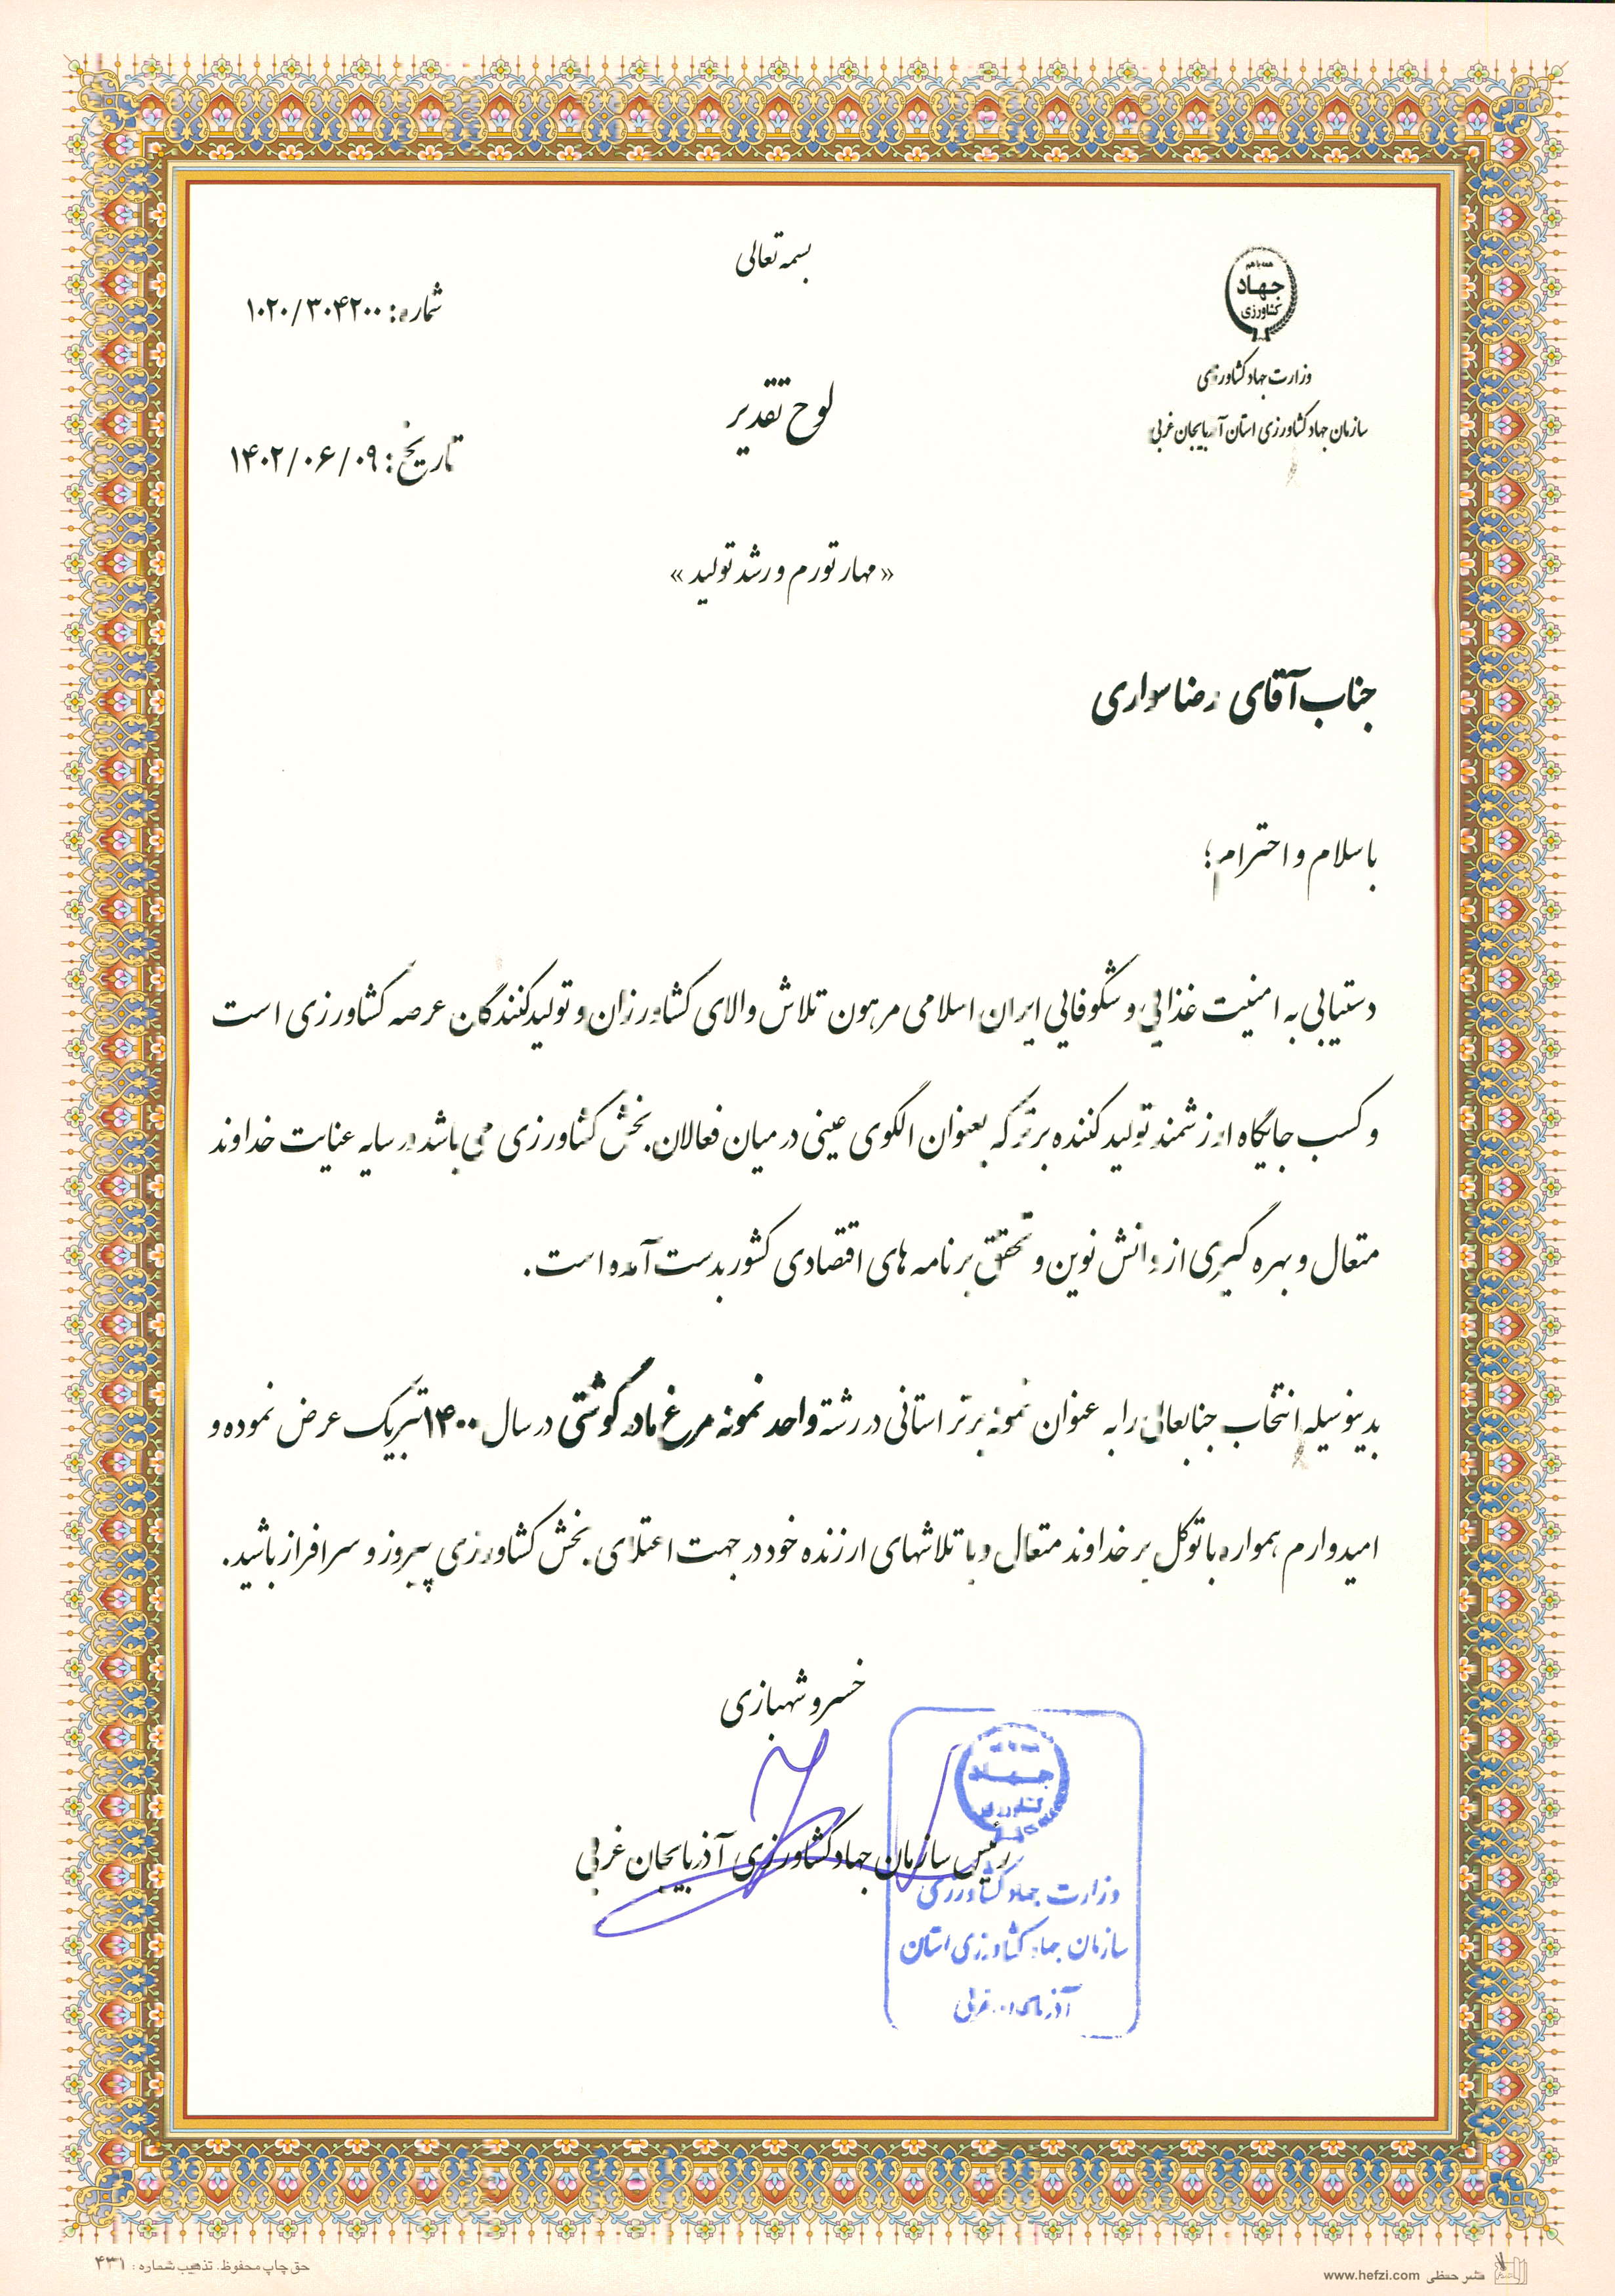 بسمه تعالی
همه با هم
جهاد
کشاورزی
وزارت جهاد کشاورزی
سازمان جهاد کشاورزی استان آذربایجان غربی
شماره: ۱۰۲۰/۳۰۴۲۰۰
لوح تقدیر
تاریخ: ۱۴۰۲/۰۶/۰۹
«مهار تورم و رشد تولید»
جناب آقای رضا سواری
با سلام و احترام؛
دستیابی به امنیت غذایی و شکوفائی ایران اسلامی مرهون تلاش والای کشاورزان و تولیدکنندگان عرصه کشاورزی است
و کسب جایگاه ارزشمند تولیدکننده برتر که بعنوان الگوی عینی در میان فعالان بخش کشاورزی می باشد در سایه عنایت خداوند
متعال و بهره گیری از دانش نوین و تحقق برنامه های اقتصادی کشور بدست آمده است.
بدینوسیله انتخاب جنابعالی را به عنوان نمونه برتر استانی در رشته واحد نمونه مرغ مادر گوشتی در سال ۱۴۰۰ تبریک عرض نموده و
امیدوارم همواره با توکل بر خداوند متعال و با تلاشهای ارزنده خود در جهت اعتلای بخش کشاورزی پیروز و سرافراز باشید.
خسرو شهبازی
رئیس سازمان جهاد کشاورزی آذربایجان غربی
جهاد
وزارت جهاد کشاورزی
سازمان جهاد کشاورزی استان
آذربایجان غربی
حق چاپ محفوظ. تذهیب شماره: ۴۳۱
نشر حفظی www.hefzi.com